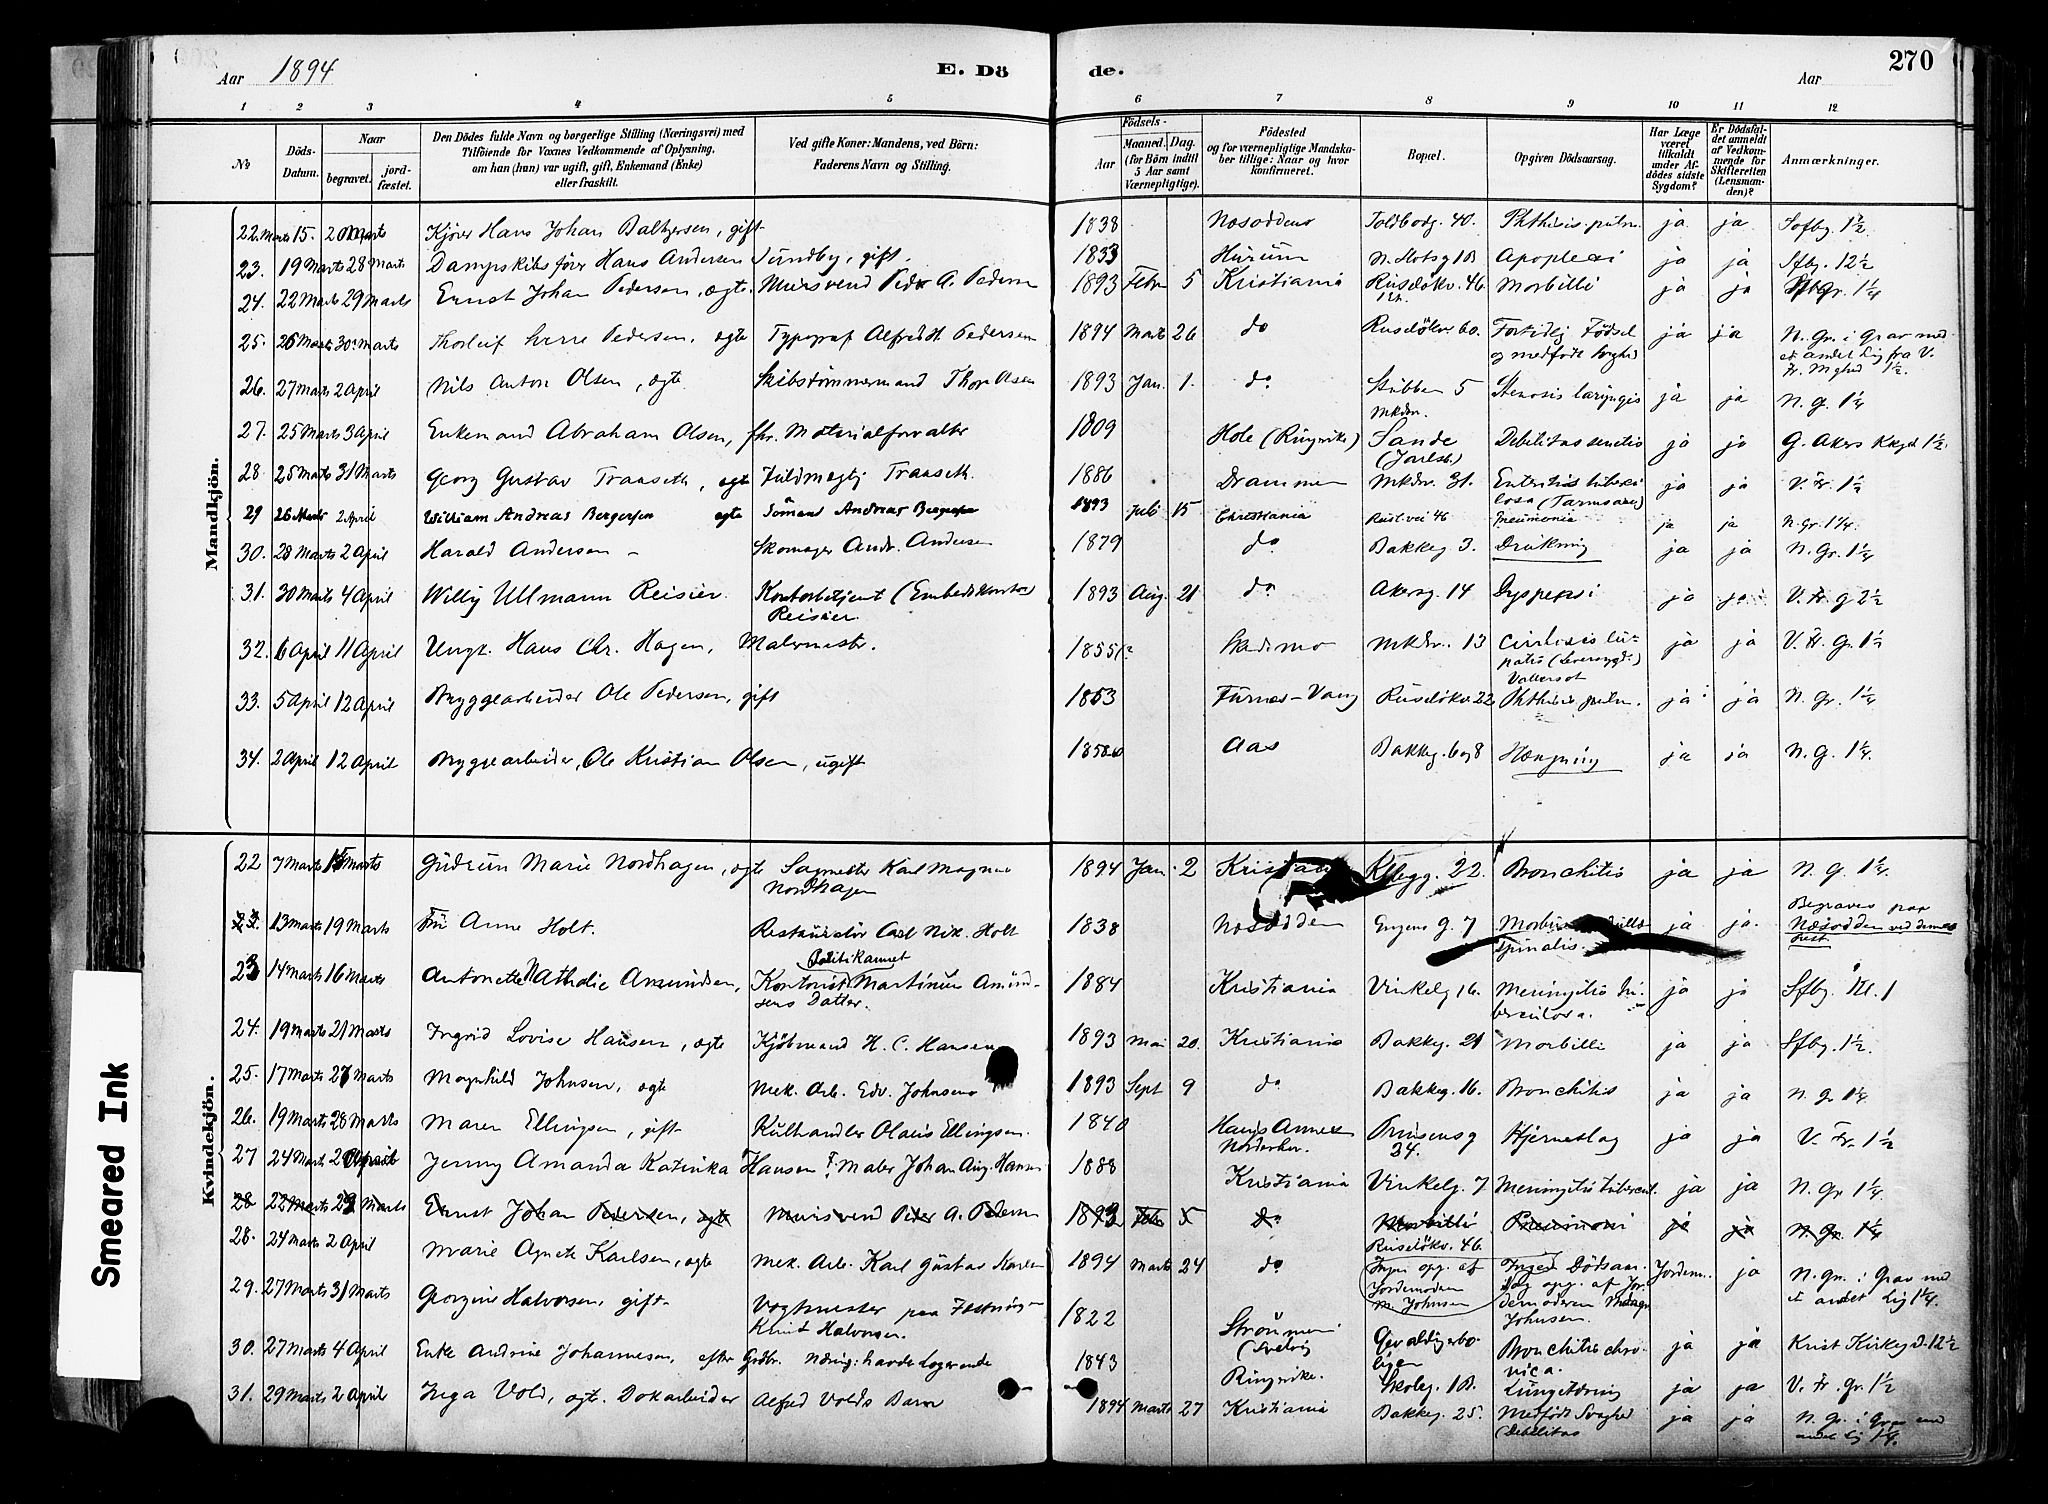 Aar 1894
E. Dö
de.
Aar
270
1 2 3 4 5 6 7 8 9 10 11 12
No
Döds-Datum.
Naar
begravet.
jord-fæstet.
Den Dödes fulde Navn og borgerlige Stilling (Næringsvei) med
Tilföiende for Voxnes Vedkommende af Oplysning,
om han (hun) var ugift, gift, Enkemand (Enke)
eller fraskilt.
Ved gifte Koner: Mandens, ved Börn:
Faderens Navn og Stilling.
Födsels-
Aar
Maaned. Dag.
(for Börn indtil
5 Aar samt
Værnepligtige).
Födested
og for værnepligtige Mandska-
ber tillige: Naar og hvor
konfirmeret.
Bopæl.
Opgiven Dödsaarsag.
Har Læge
været
tilkaldt
under Af-
dödes sidste
Sygdom?
Er Dödsfal-
det anmeldt
af Vedkom-
mende for
Skifteretten
(Lensman-
den)?
Anmærkninger.
Mandkjön.
22. Marts 15. 20 Marts Kjører Hans Johan Baltzersen, gift 1838 Nesodden Toldbodg. 40. Phthisis pulm. ja ja Sofbg. 1½
23. 19 Marts 28 Marts Dampskibsfører Hans Andersen Sundby, gift. 1833 Hurum N. Slotsg 10 Apoplexi ja ja Sfbg. 12½
24. 22 Marts 29 Marts Ernst Johan Pedersen, ægte Mursvend Peder A. Pedersen 1893 Febr 5 Kristiania Ruselökv. 46 Morbilli ja ja N. Gr. 1¼
25. 26 Marts 30 Marts Thorleif Pedersen, ægte Typograf Alfred H. Pedersen 1894 Marts 26 do Ruselökv 60. Fortidlig Födsel
og medfödt Svaghed ja ja N. Gr. i Grav med
et andet Lig fra V.
Fr. 1½.
26. 27 Marts 2 April Nils Anton Olsen, ægte Skibstömmermand Thor Olsen 1893 Jan. 1. do Stubben 5 Stenosis laryngis ja ja N. G. 1¼
27. 25 Marts 3 April Enkemand Abraham Olsen, fhv. Materialforvalter 1809 Hole (Ringerike) Sande
(Jarlsb.) Debilitas senilis ja ja G. Akers Kkgd 1½.
28. 25 Marts 31 Marts Georg Gustav Traaseth, ægte Fuldmægtig Traaseth. 1886 Drammen Mkdv. 31. Enteritis tuberku-
losa (Tarmsaar) ja ja V. Fr. 1½
29 26 Marts 2 April William Andreas Bergersen ægte Sömand Andreas Bergersen 1893 Juli 15 Christiania Rusl.vei 46 Pneumonia ja ja N. Gr. 1¼.
30. 28 Marts 2 April Harald Andersen - Skomager Andr. Andersen 1879 do Bakkeg. 3. Drukning ja ja N. Gr. 1¼
31. 30 Marts 4 April Willy Ullmann Reisier Kontorbetjent (Embedskontor)
Reisier. 1893 Aug. 21 do Akersg. 14 Dyspepsi ja ja V. Fr. g 2½
32. 6 April 11 April Ungk. Hans Chr. Hagen, Malermester. 1855? Skedsmo Mkdv. 13 Cirrhosis
(Leversygd.)
Vattersot ja ja V. Fr. G. 1½
33. 5 April 12 April Bryggearbeider Ole Pedersen, gift 1853 Furnes-Vang Ruselökv 22 Phthisis pulm. ja ja N. Gr. 1¼
34. 2 April 12 April Bryggearbeider, Ole Kristian Olsen, ugift 1858 Aas Bakkeg. 6 og 8 Hængning ja ja N. G. 1¼.
Kvindekjön.
22 7 Marts 15 Marts Gudrun Marie Nordhagen, ægte Sagmester Karl Magnus
Nordhagen 1894 Jan. 2 Kristiania 22. Bronchitis ja ja N. G. 1¼.
23. 13 Marts 19 Marts Fru Anne Holt. Restauratör Carl Nik. Holt 1838 Nesodden Eugens G. 7 Morbus
spinalis. ja ja. Begraves paa
Næsodden ved dennes
Præst.
23 14 Marts 16 Marts Antonette Nathalie Amundsen, Politikamret
Kontorist Martinus Amund-
sens Datter. 1884 Kristiania Vinkelg 16. Meningitis tu-
berculosa. ja ja Sfbg. Kl. 1
24. 19 Marts 21 Marts Ingrid Lovise Hansen, ægte Kjöbmand H. C. Hansen 1893 Mai 20. Kristiania Bakkeg. 21 Morbilli ja ja Sfbg. 1½.
25. 17 Marts 27 Marts Magnhild Johnsen, ægte Mek. Arb. Edv. Johnsen 1893 Sept 9 do Bakkeg. 16. Bronchitis ja ja N. gr 1¼
26. 19 Marts 28 Marts Maren Ellingsen, gift Kulhandler Olaus Ellingsen. 1840 Haugs Annex
Norderhov. Prinsens g
34. Hjerneslag ja ja V. Fr. 1½
27 24 Marts 2 April Jenny Amanda Katinka Hansen F. Maler Johan Aug. Hansen 1888 Kristiania Vinkelg. 7 Meningitis tubercul. ja ja N. Gr 1¼.
28 22 Marts 29 Marts Ernst Johan Pedersen, ægte Mursvend Peder A. Pedersen 1893 Febr 5 do Morbilli
Ruselökv. 46. Pneumoni ja ja N. Gr. 1¼
28. 24 Marts 2 April Marie Agnete Karlsen, ægte Mek. Arb. Karl Gustav Karlsen 1894 Marts 24 do Ingen opg. af
Jordemoderen
M. Johnsen Ingen Dödsaar-
sag opg. af Jor-
demoderen
Johnsen. Jordem. ja N. Gr. i Grav med
et andet Lig 1¼.
29. 27 Marts 31 Marts Georgine Halvorsen, gift Vagtmester paa Fæstningen
Knut Halvorsen. 1822 Strömmen
(Svelvig Gevaldigerbo-
ligen Bronchitis chro-
nica. ja ja Krist Kirkegd. 12½
30. 27 Marts 4 April Enke Andrine Johannesen, efter Grdbr. Næring: havde Logerende 1843 Ringerike. Skoleg. 1B. Lungetæring ja ja V. Fr. Gr. 1½
31. 29 Marts 2 April Inga Vold, ægte. Dokarbeider Alfred Volds Barn 1894 Marts 27 Kristiania Bakkeg. 25. Medfödt Svaghed
(Debilitas ja ja N. Gr. i Grav med
andet Lig 1¼.
Smeared Ink